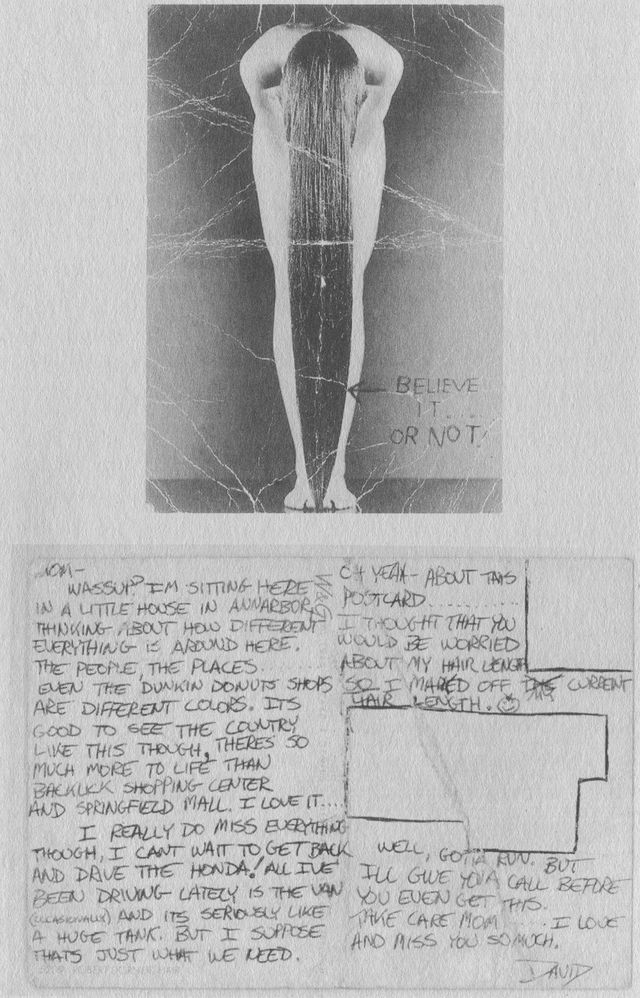 ← BELIEVE
IT....
OR NOT!
MOM-
WASSUP? IM SITTING HERE
IN A LITTLE HOUSE IN ANNARBOR,
THINKING ABOUT HOW DIFFERENT
EVERYTHING IS AROUND HERE.
THE PEOPLE, THE PLACES..........
EVEN THE DUNKIN DONUTS SHOPS
ARE DIFFERENT COLORS. ITS
GOOD TO SEE THE COUNTRY
LIKE THIS THOUGH, THERES SO
MUCH MORE TO LIFE THAN
BACKLICK SHOPPING CENTER
AND SPRINGFIELD MALL. I LOVE IT....
I REALLY DO MISS EVERYTHING
THOUGH, I CANT WAIT TO GET BACK
AND DRIVE THE HONDA! ALL IVE
BEEN DRIVING LATELY IS THE VAN
(OCCASIONALLY) AND ITS SERIOUSLY LIKE
A HUGE TANK. BUT I SUPPOSE
THATS JUST WHAT WE NEED.
OH YEAH- ABOUT THIS
POSTCARD..........
I THOUGHT THAT YOU
WOULD BE WORRIED
ABOUT MY HAIR LENGTH
SO I MARKED OFF MY CURRENT
HAIR LENGTH.
WELL, GOTTA RUN. BUT
I'LL GIVE YOU A CALL BEFORE
YOU EVEN GET THIS.
TAKE CARE MOM ..... I LOVE
AND MISS YOU SO MUCH.
DAVID